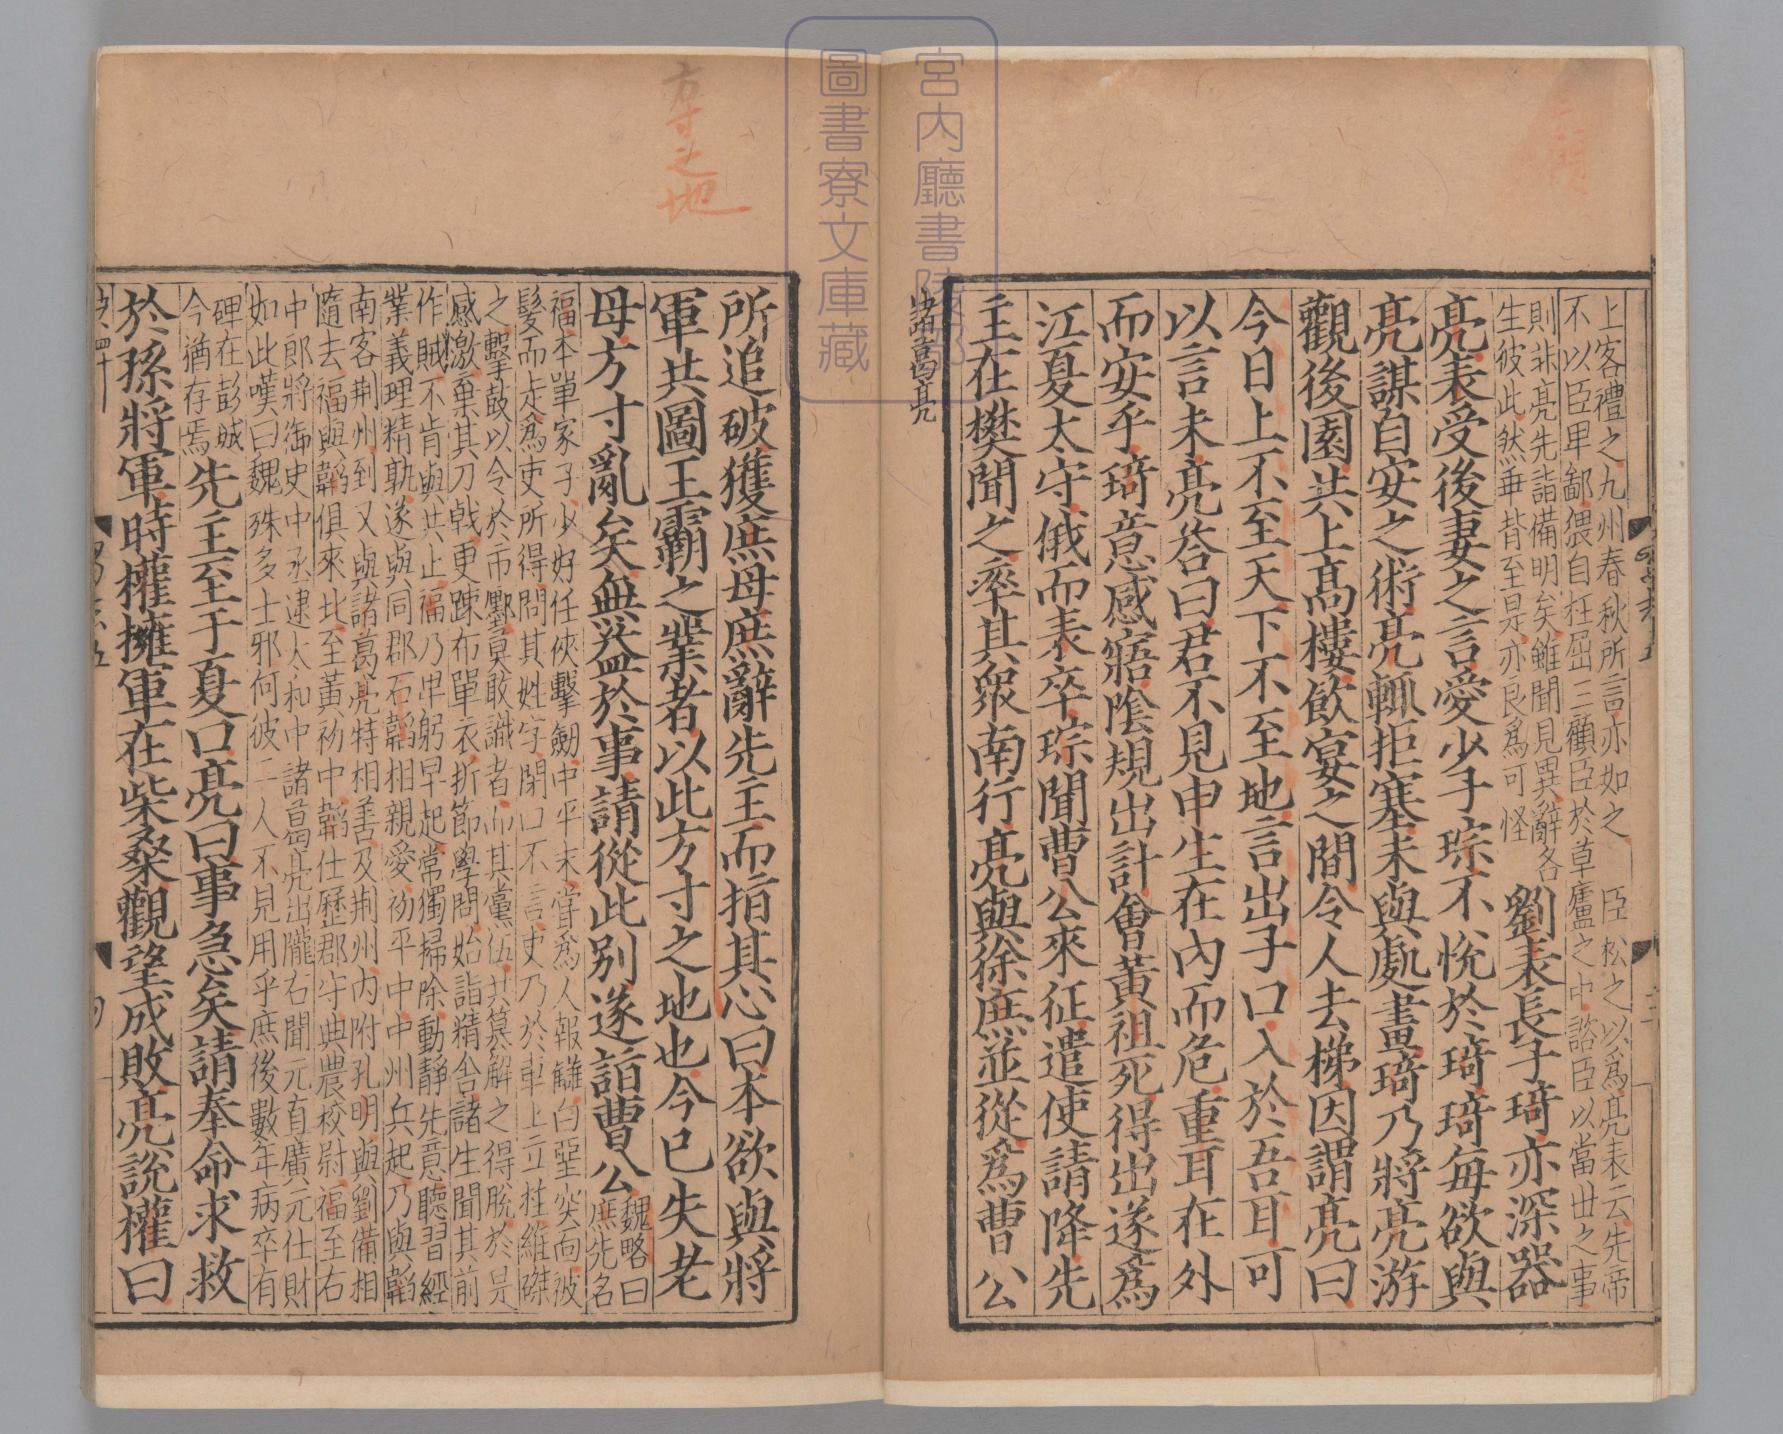 上客禮之九州春秋所言亦如之　臣松之以爲亮表云先帝
不以臣卑鄙猥自枉屈三顧臣於草廬之中諮臣以當世之事
則非亮先詣備明矣雖聞見異辭各
生彼此然乖背至是亦良爲可怪
劉表長子琦亦深器
亮表受後妻之言愛少子琮不悅於琦琦每欲與
亮謀自安之術亮輒拒塞未與處畫琦乃將亮游
觀後園共上高樓飲宴之間令人去梯因謂亮曰
今日上不至天下不至地言出子口入於吾耳可
以言未亮荅曰君不見申生在內而危重耳在外
而安乎琦意感寤隂規出計會黃祖死得出遂爲
江夏太守俄而表卒琮聞曹公來征遣使請降先
主在樊聞之率其衆南行亮與徐庶並從爲曹公
諸葛亮
宮內廳書陵部
圖書寮文庫藏
方寸之地
所追破獲庶母庶辭先主而指其心曰本欲與將
軍共圖王霸之業者以此方寸之地也今已失老
母方寸亂矣無益於事請從此別遂詣曹公
魏略曰
庶先名
福本單家子少好任俠擊劒中平末嘗爲人報讎白堊突面被
髮而走爲吏所得問其姓字閉口不言吏乃於車上立柱維磔
之擊鼓以令於市鄽莫敢識者而其黨伍共篡解之得脫於是
感激棄其刀戟更踈布單衣折節學問始詣精舍諸生聞其前
作賊不肯與共止福乃卑躬早起常獨掃除動靜先意聽習經
業義理精孰遂與同郡石韜相親愛初平中中州兵起乃與韜
南客荆州到又與諸葛亮特相善及荆州內附孔明與劉備相
隨去福與韜俱來北至黃初中韜仕歷郡守典農校尉福至右
中郎將御史中丞逮太和中諸葛亮出隴右聞元直廣元仕財
如此嘆曰魏殊多士邪何彼二人不見用乎庶後數年病卒有
碑在彭城
今猶存焉
先主至于夏口亮曰事急矣請奉命求救
於孫將軍時權擁軍在柴桑觀望成敗亮說權曰